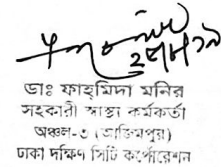 ২৫/৮/১৯
ডাঃ ফাহমিদা মনির
সহকারী স্বাস্থ্য কর্মকর্তা
অঞ্চল-৩ (আজিমপুর)
ঢাকা দক্ষিণ সিটি কর্পোরেশন